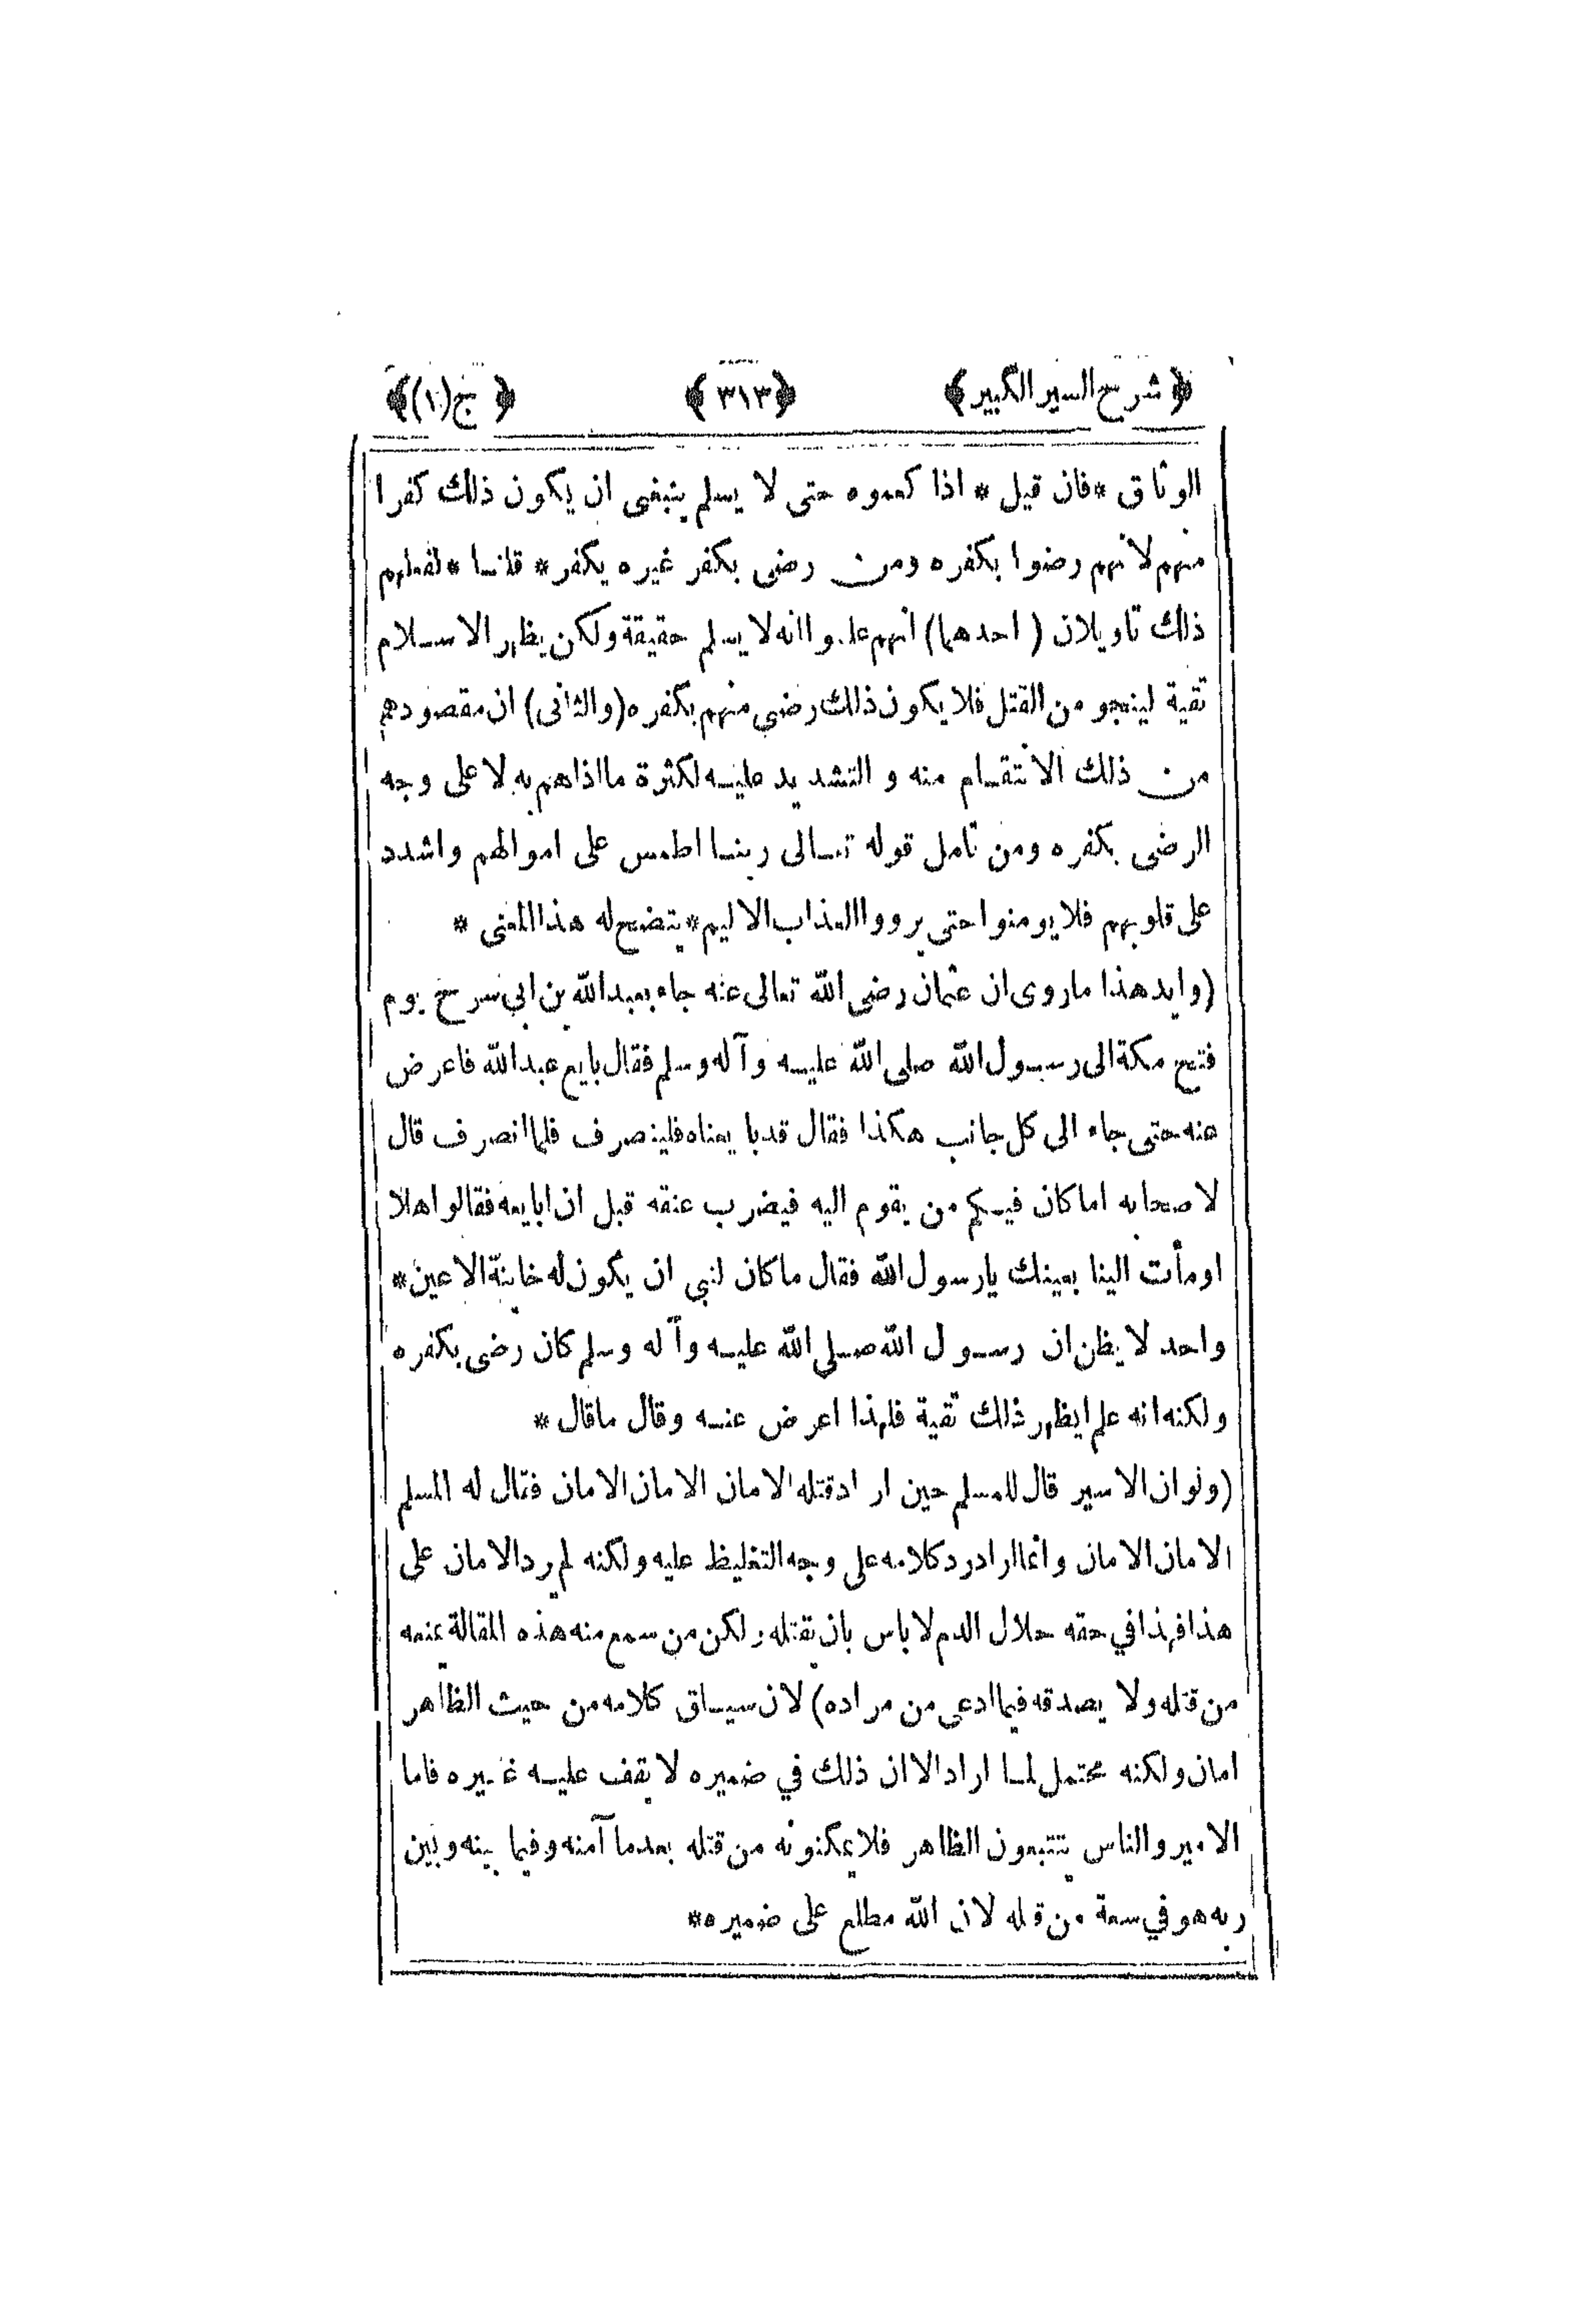 ﴿ شرح السير الكبير ﴾ ﴿ ٣١٣ ﴾ ﴿ ج (١) ﴾
الوثاق * فان قيل * اذا كعموه حتى لا يسلم ينبغى ان يكون ذلك كفرا
منهم لانهم رضوا بكفره ومن رضى بكفر غيره يكفر * قلنا * لفعلهم
ذلك تاويلان ( احدهما ) انهم علموا انه لا يسلم حقيقة ولكن يظهر الاسلام
تقية لينجو من القتل فلا يكون ذلك رضى منهم بكفره ( والثانى ) ان مقصودهم
من ذلك الانتقام منه و التشديد عليه لكثرة ما اذاهم به لا على وجه
الرضى بكفره ومن تامل قوله تعالى ربنا اطمس على اموالهم واشدد
على قلوبهم فلا يومنوا حتى يروو االعذاب الاليم * يتضح له هذا المعنى *
( وايد هذا ماروى ان عثمان رضى الله تعالى عنه جاء بعبد الله بن ابي سرح يوم
فتح مكة الى رسول الله صلى الله عليه وآله وسلم فقال بايع عبد الله فاعرض
عنه حتى جاء الى كل جانب هكذا فقال قد بايعناه فلينصرف فلما انصرف قال
لاصحابه اما كان فيكم من يقوم اليه فيضرب عنقه قبل ان ابايعه فقالوا هلا
اومأت الينا بعينك يا رسول الله فقال ما كان لنبي ان يكون له خائنة الاعين *
واحد لا يظن ان رسول الله صلى الله عليه وآله وسلم كان رضى بكفره
ولكنه انه علم ايظهر ذلك تقية فلهذا اعرض عنه وقال ماقال *
( ولو ان الاسير قال للمسلم حين اراد قتله الامان الامان الامان فقال له المسلم
الامان الامان وانما اراد رد كلامه على وجه التغليظ عليه ولكنه لم يرد الامان على
هذا فهذا في حقه حلال الدم لاباس بان يقتله ولكن من سمع منه هذه المقالة يمنعه
من قتله ولا يصدقه فيما ادعى من مراده ) لان سياق كلامه من حيث الظاهر
امان ولكنه محتمل لما اراد الا ان ذلك في ضميره لا يقف عليه غيره فاما
الامير والناس يتتبعون الظاهر فلا يمكنونه من قتله بعد ما آمنه وفيما بينه وبين
ربه هو في سعة من قتله لان الله مطلع على ضميره *